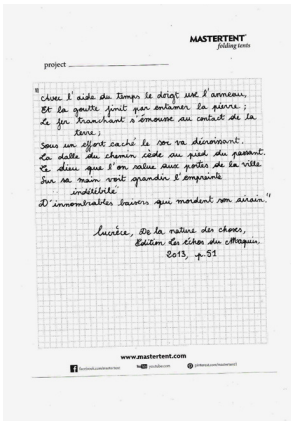 MASTERTENT
folding tents
project
"Avec l'aide du temps le doigt use l'anneau,
Et la goutte finit par entamer la pierre ;
Le fer tranchant s'émousse au contact de la
terre ;
Sous un effort caché le soc va décroissant.
La dalle du chemin cède au pied du passant.
Le dieu que l'on salue aux portes de la ville
Sur sa main voit grandir l'empreinte
indélébile
D'innombrables baisers qui mordent son airain."
Lucrèce, De la nature des choses,
Edition Les échos du Maquis.
2013, p.51
www.mastertent.com
facebook.com/mastertent
youtube.com
pinterest.com/mastertent1